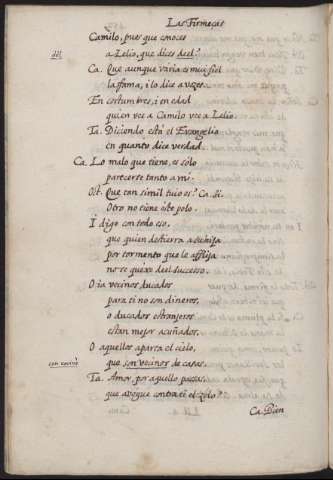 Las Firmeças
Camilo, pues que conoces
iii a Lelio, que dices deel?
Ca. Que aunque varia es mui fiel
la fama, i lo dice a voces.
En costumbres, i en edad
quien vee a Camilo vee a Lelio.
Ta. Diciendo está el Evangelio
en quanto dice verdad.
Ca. Lo malo que tiene, es solo
parecerse tanto a mi.
Oct. Que tan simil tuio es? Ca. Si.
Otro no tiene este polo.
I digo con todo eso,
que quien destierra a su hija
por tormento que le afflija
no se quexe del successo.
O ia vecinos ducados
para ti no son dineros,
o ducados estranjeros
estan mejor acuñados.
O aquellos aparta el cielo,
con vecinos que son vecinos de casas.
Ta. Amor, por aquello pasas,
que alegue contra ti el zelo?
Ca. Bien